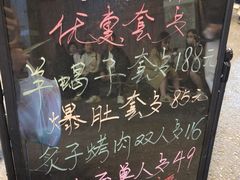 优惠套餐
羊蝎子套餐188元
爆肚套餐85元
炙子烤肉双人餐16
单人餐49